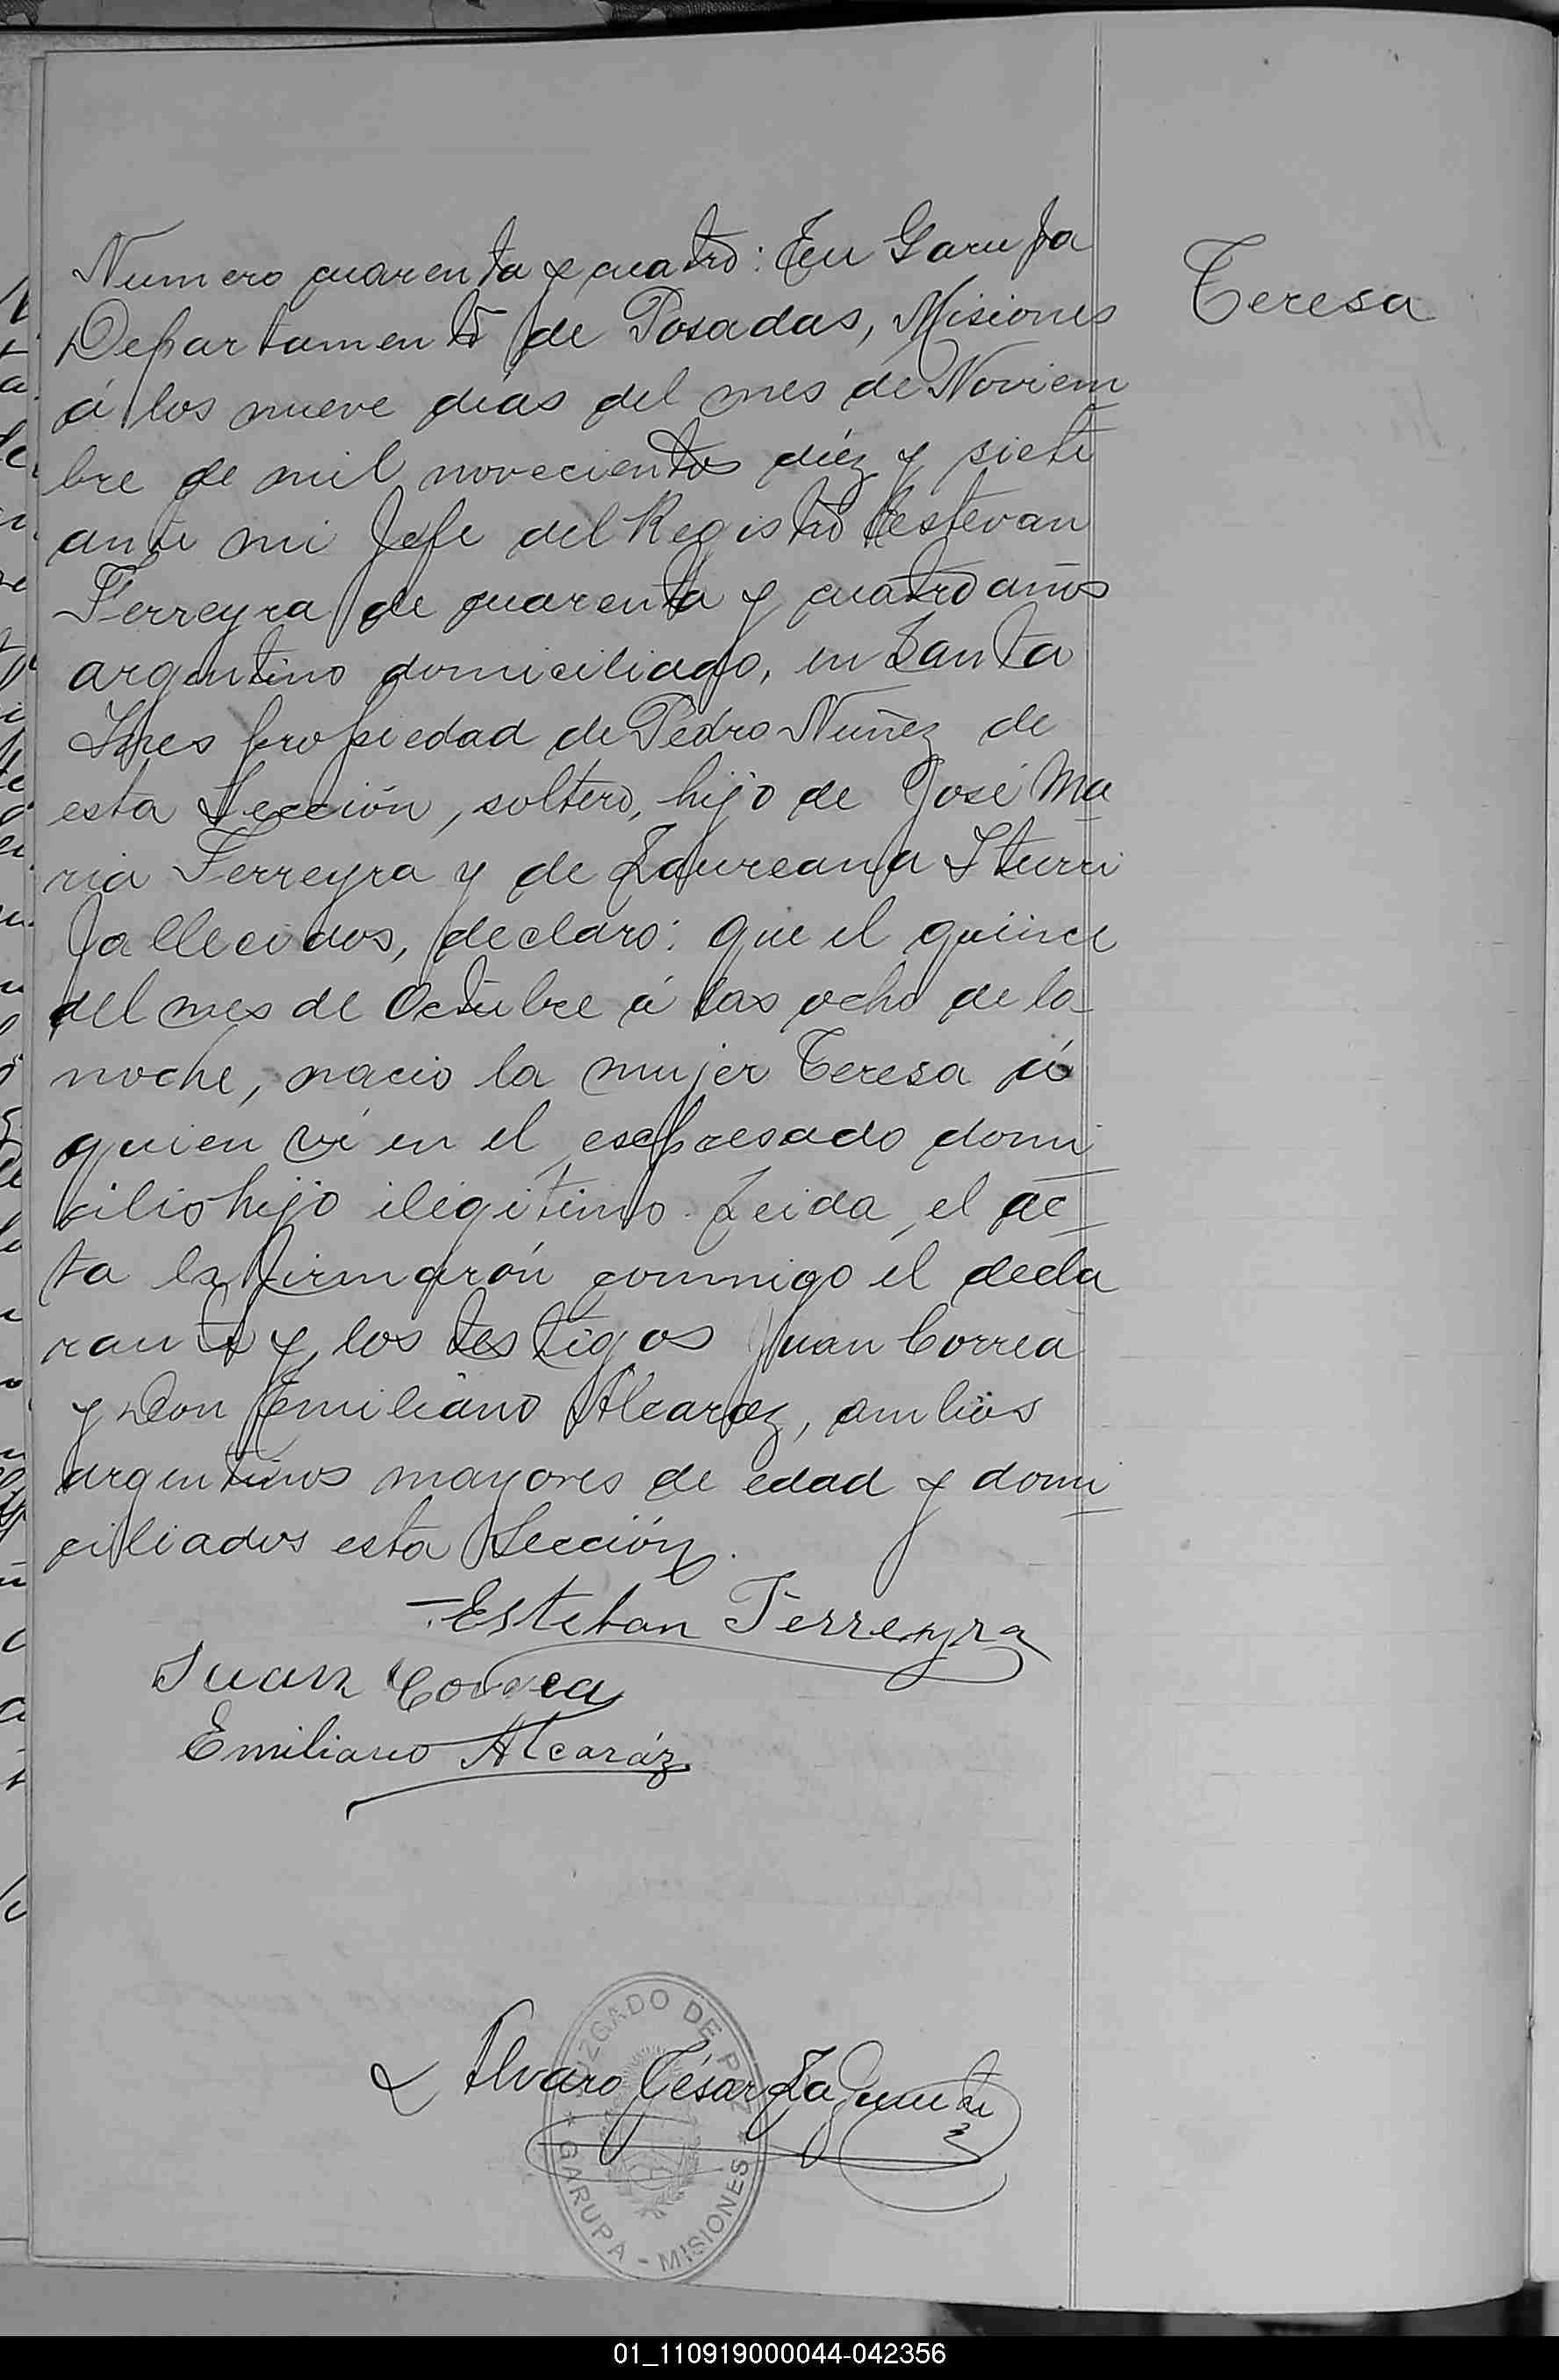 Numero cuarenta y cuatro: En Garupa
Teresa
Departamento de Posadas, Misiones
á los nueve días del mes de Noviem
bre de mil novecientos diéz y siete
ante mi Jefe del Registro Estevan
Ferreyra de cuarenta y cuatro años
argentino domiciliado, en Santa
Ines propiedad de Pedro Nuñez de
esta Sección, soltero, hijo de José Ma
ria Ferreyra y de Laureana Iturri
fallecidos, declaro: que el quince
del mes de Octubre á las ocho de la
noche, nacio la mujer Teresa á
quien ví en el espresado domi
cilio hijo ilegitimo. Leida, el ac
ta la firmarón conmigo el decla
rante y los testigos Juan Correa
y Don Emiliano Alcaraz, ambos
argentinos mayores de edad y domi
ciliados esta Sección.
Esteban Ferreyra
Juan Correa
Emiliano Alcaráz
JUZGADO DE PAZ
Alvaro César
GARUPA - MISIONES
01_110919000044-042356